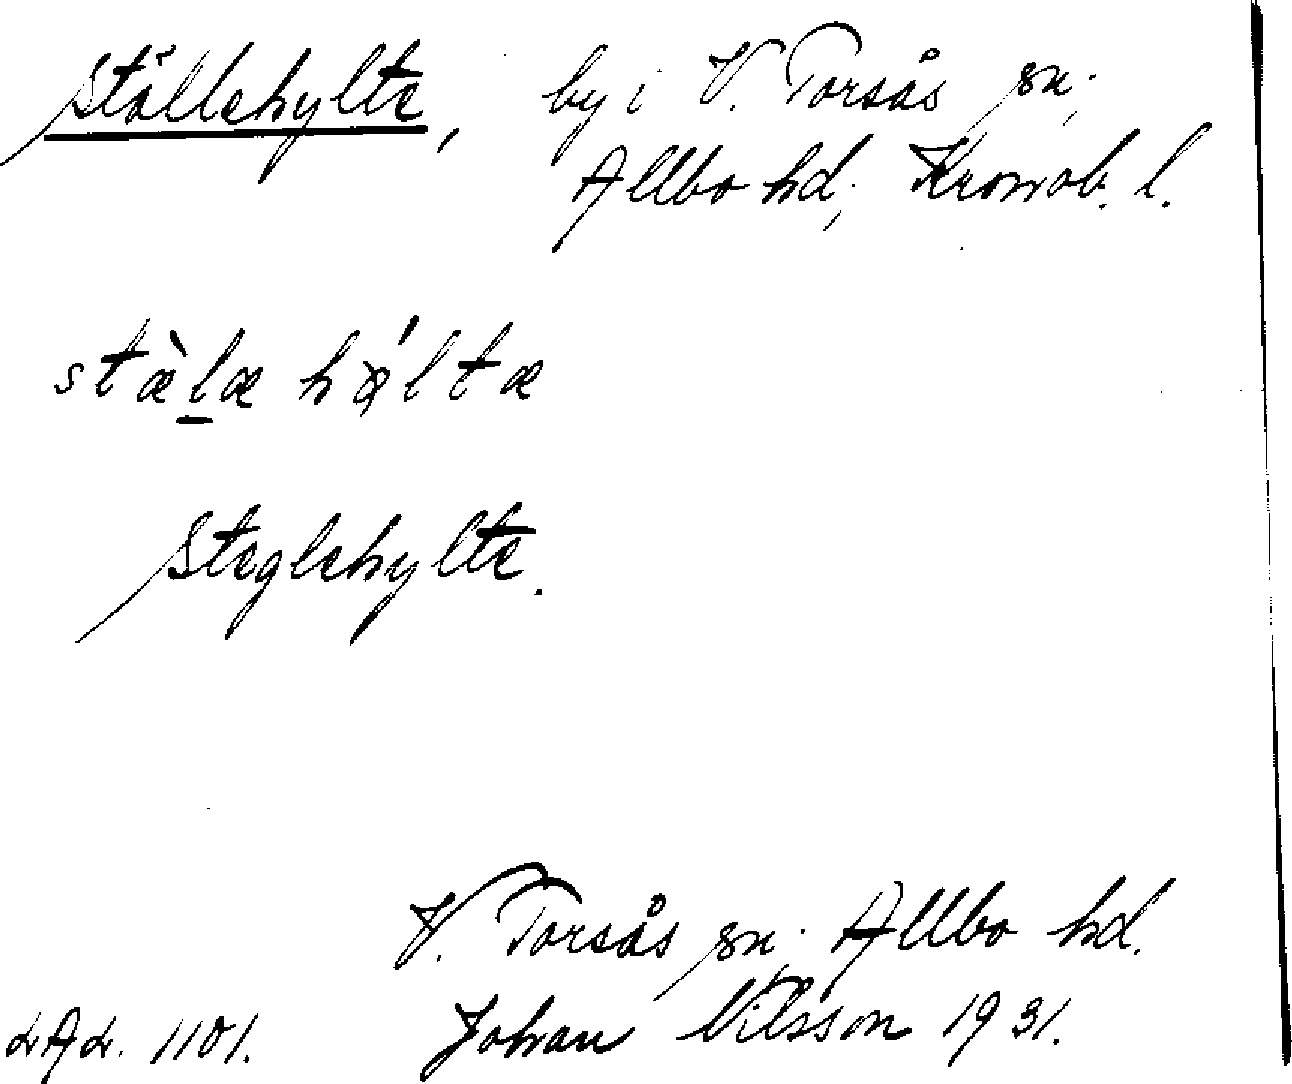 Ställehylte, by i V. Torsås sn.,
Allbo hd., Kronob. l.
stæ̀l̲æ hǿltæ
Steglehylte.
V. Torsås sn. Allbo hd.
LAL. 1101. Johan Nilsson 1931.